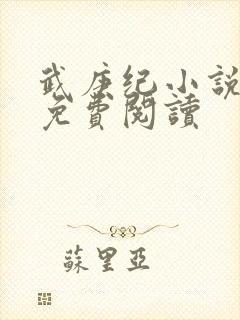 武庚纪小説
免費閱讀
蘇里亞